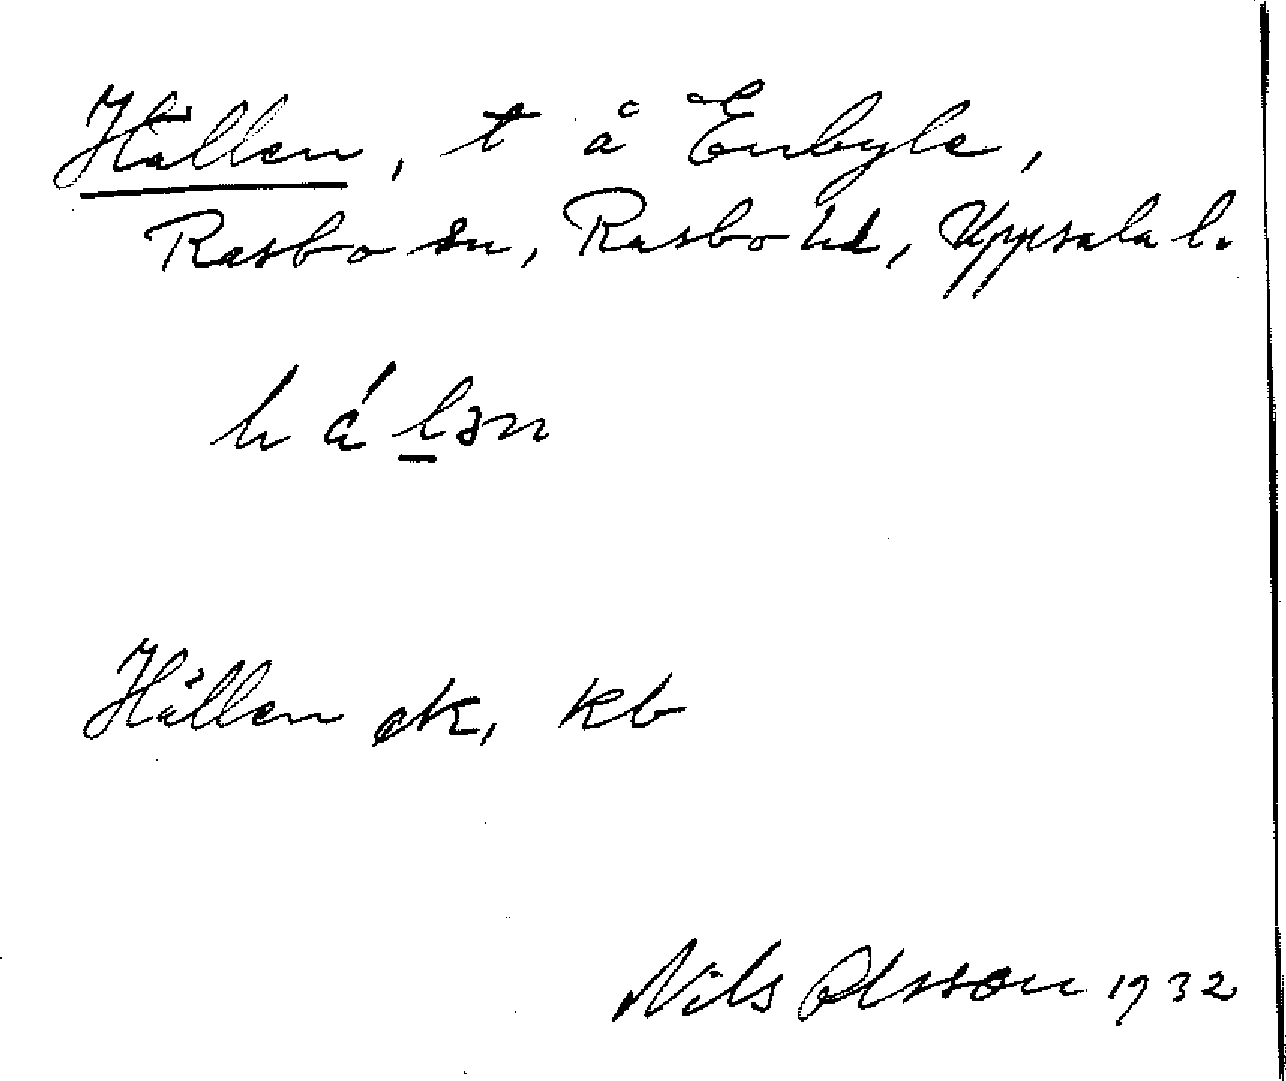 Hållen, t å Enbyle,
Rasbo sn, Rasbo hd, Uppsala l.
h á lən
Hållen ek, kb
Nils Olsson 1932